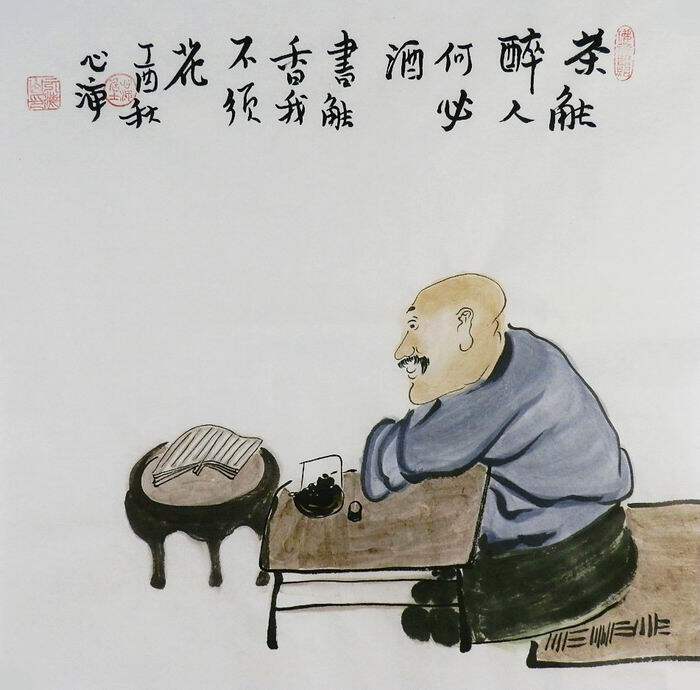 茶能
醉人
何必
酒
書能
香我
不须
花
丁酉秋
心